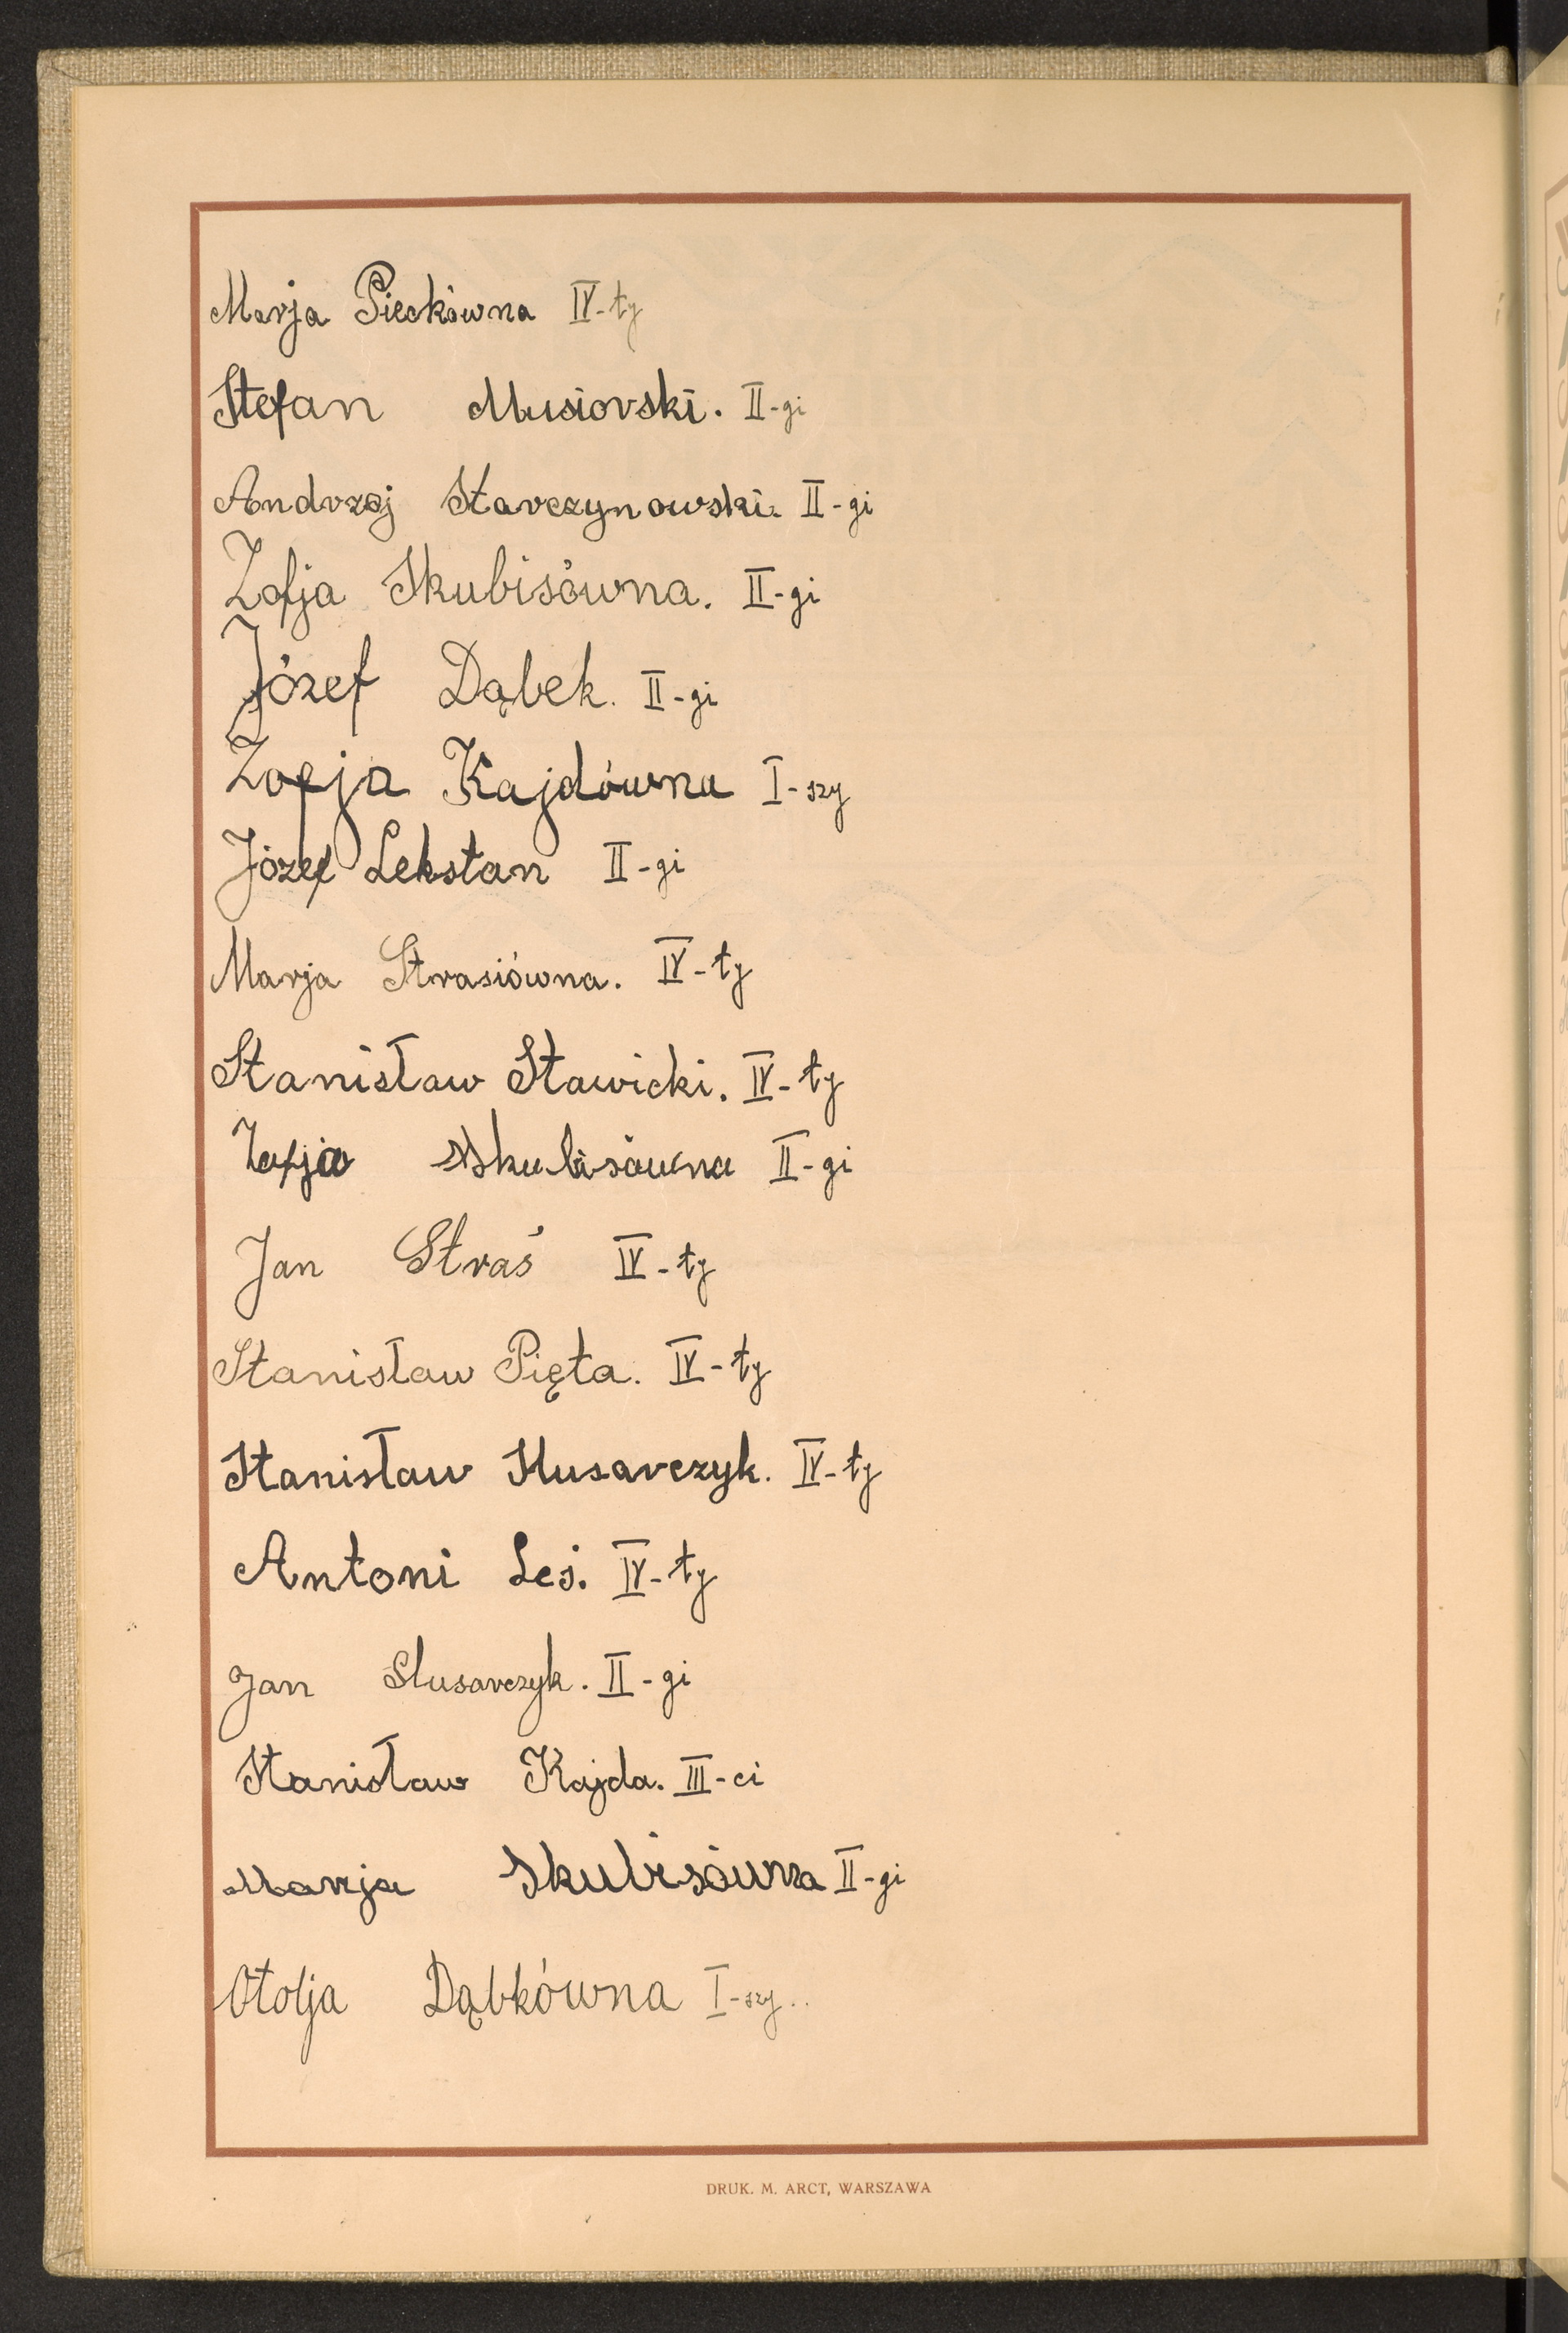 Marja Pieckówna IV-ty
Stefan Musiorski. II-gi
Andrzej Starczynowski. II-gi
Zofja Skubisówna. II-gi
Józef Dąbek. II-gi
Zofja Kajdówna I-szy
Józef Lekstan II-gi
Marja Strasiówna. IV-ty
Stanisław Stawicki. IV-ty
Zofja Skubisówna II-gi
Jan Straś IV-ty
Stanisław Pięta. IV-ty
Stanisław Slusarczyk. IV-ty
Antoni Leś. IV-ty
Jan Slusarczyk. II-gi
Stanisław Kajda. III-ci
Marja Skubisówna II-gi
Otolja Dąbkówna I-szy..
DRUK. M. ARCT, WARSZAWA